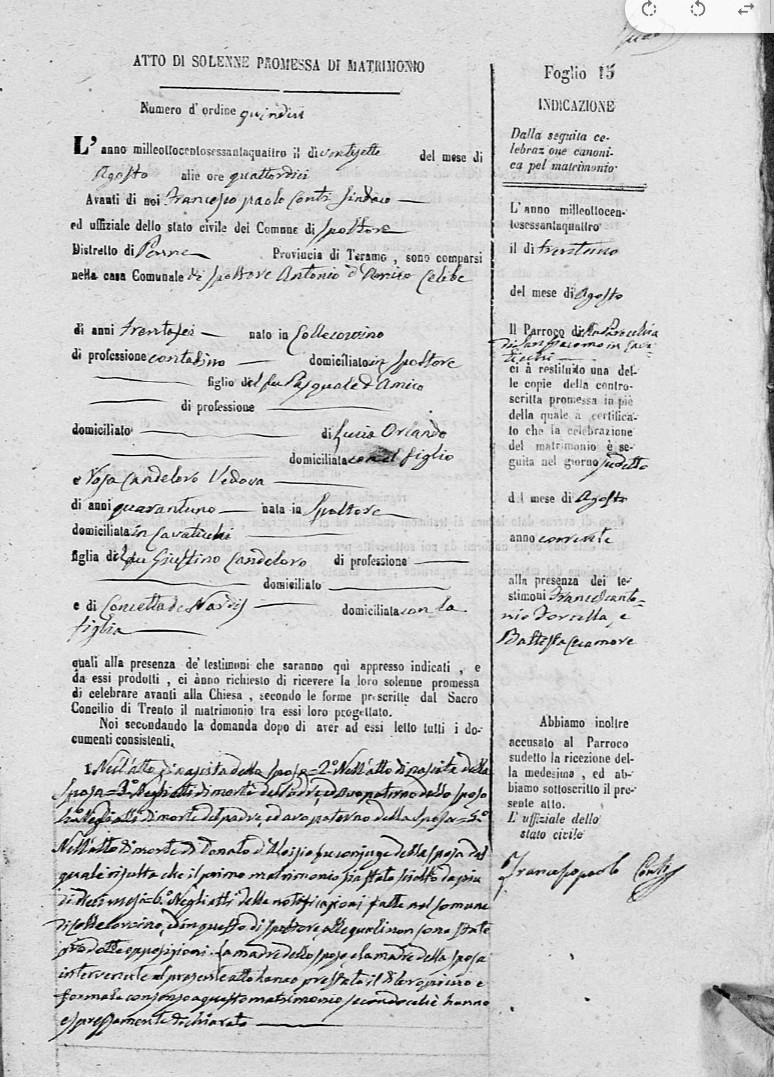 ATTO DI SOLENNE PROMESSA DI MATRIMONIO
Numero d'ordine quindici
L'anno milleottocentosessantaquattro il di ventisette del mese di
Agosto alle ore quattordici
Avanti di noi Francesco paolo Conti Sindaco
ed uffiziale dello stato civile del Comune di Spoltore
Distretto di Penne Provincia di Teramo, sono comparsi
nella casa Comunale di Spoltore Antonio d'Amico Celibe
di anni trentasei nato in Collecorvino
di professione contadino domiciliato in Spoltore
figlio del fu Pasquale d'Amico
di professione
domiciliato di Lucia Orlando
domiciliata con il figlio
e Rosa Candeloro Vedova
di anni quarantuno nata in Spoltore
domiciliata in Cavaticchi
figlia del fu Giustino Candeloro di professione
domiciliato
e di Concetta de Nardis domiciliata con la
figlia
quali alla presenza de' testimoni che saranno quì appresso indicati, e
da essi prodotti, ci ànno richiesto di ricevere la loro solenne promessa
di celebrare avanti alla Chiesa, secondo le forme prescritte dal Sacro
Concilio di Trento il matrimonio tra essi loro progettato.
Noi secondando la domanda dopo di aver ad essi letto tutti i do-
cumenti consistenti,
1. Nell'atto di nascita dello sposo = 2º Nell'atto di nascita della
sposa = 3º Negli atti di morte del padre, ed avo paterno dello sposo
4º Negli atti di morte del padre, ed avo paterno della sposa = 5º
Nell'atto di morte di Donato d'Aloisio fu conjuge della sposa dal
quale risulta che il primo matrimonio sia stato sciolto da più
di dieci mesi = 6º Negli atti delle notificazioni fatte nel Comune
di Collecorvino, ed in questo di Spoltore, alle quali non sono state
prodotte opposizioni. La madre dello sposo e la madre della sposa
intervenute al presente atto hanno prestato il di loro
formale consenso a questo matrimonio secondochè hanno
espressamente dichiarato
Foglio 15
INDICAZIONE
Dalla seguita ce-
lebrazione canoni-
ca pel matrimonio
L'anno milleottocen-
tosessantaquattro
il di trentuno
del mese di Agosto
Il Parroco di Parrocchia
di San Giacomo in Cava-
ticchi
ci à restituito una del-
le copie della contro-
scritta promessa in piè
della quale à certifica-
to che la celebrazione
del matrimonio è se-
guita nel giorno sudetto
del mese di Agosto
anno corrente
alla presenza dei te-
stimoni Francescanto-
nio Dorcella, e
Battista
Abbiamo inoltre
accusato al Parroco
sudetto la ricezione del-
la medesima, ed ab-
biamo sottoscritto il pre-
sente atto.
L'uffiziale dello
stato civile
Francesco paolo Conti